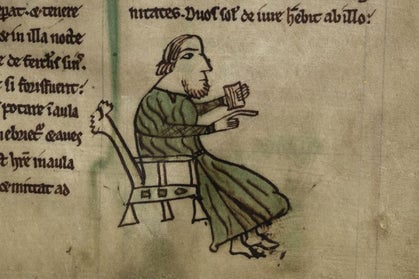 pat. & tenere
& in illa nocte
de ferclis sin.
t si fuerit:
potare i aula
& aues
t hre in aula
mittat ad
nitates. Duos sol. de iure hebit ab illo: